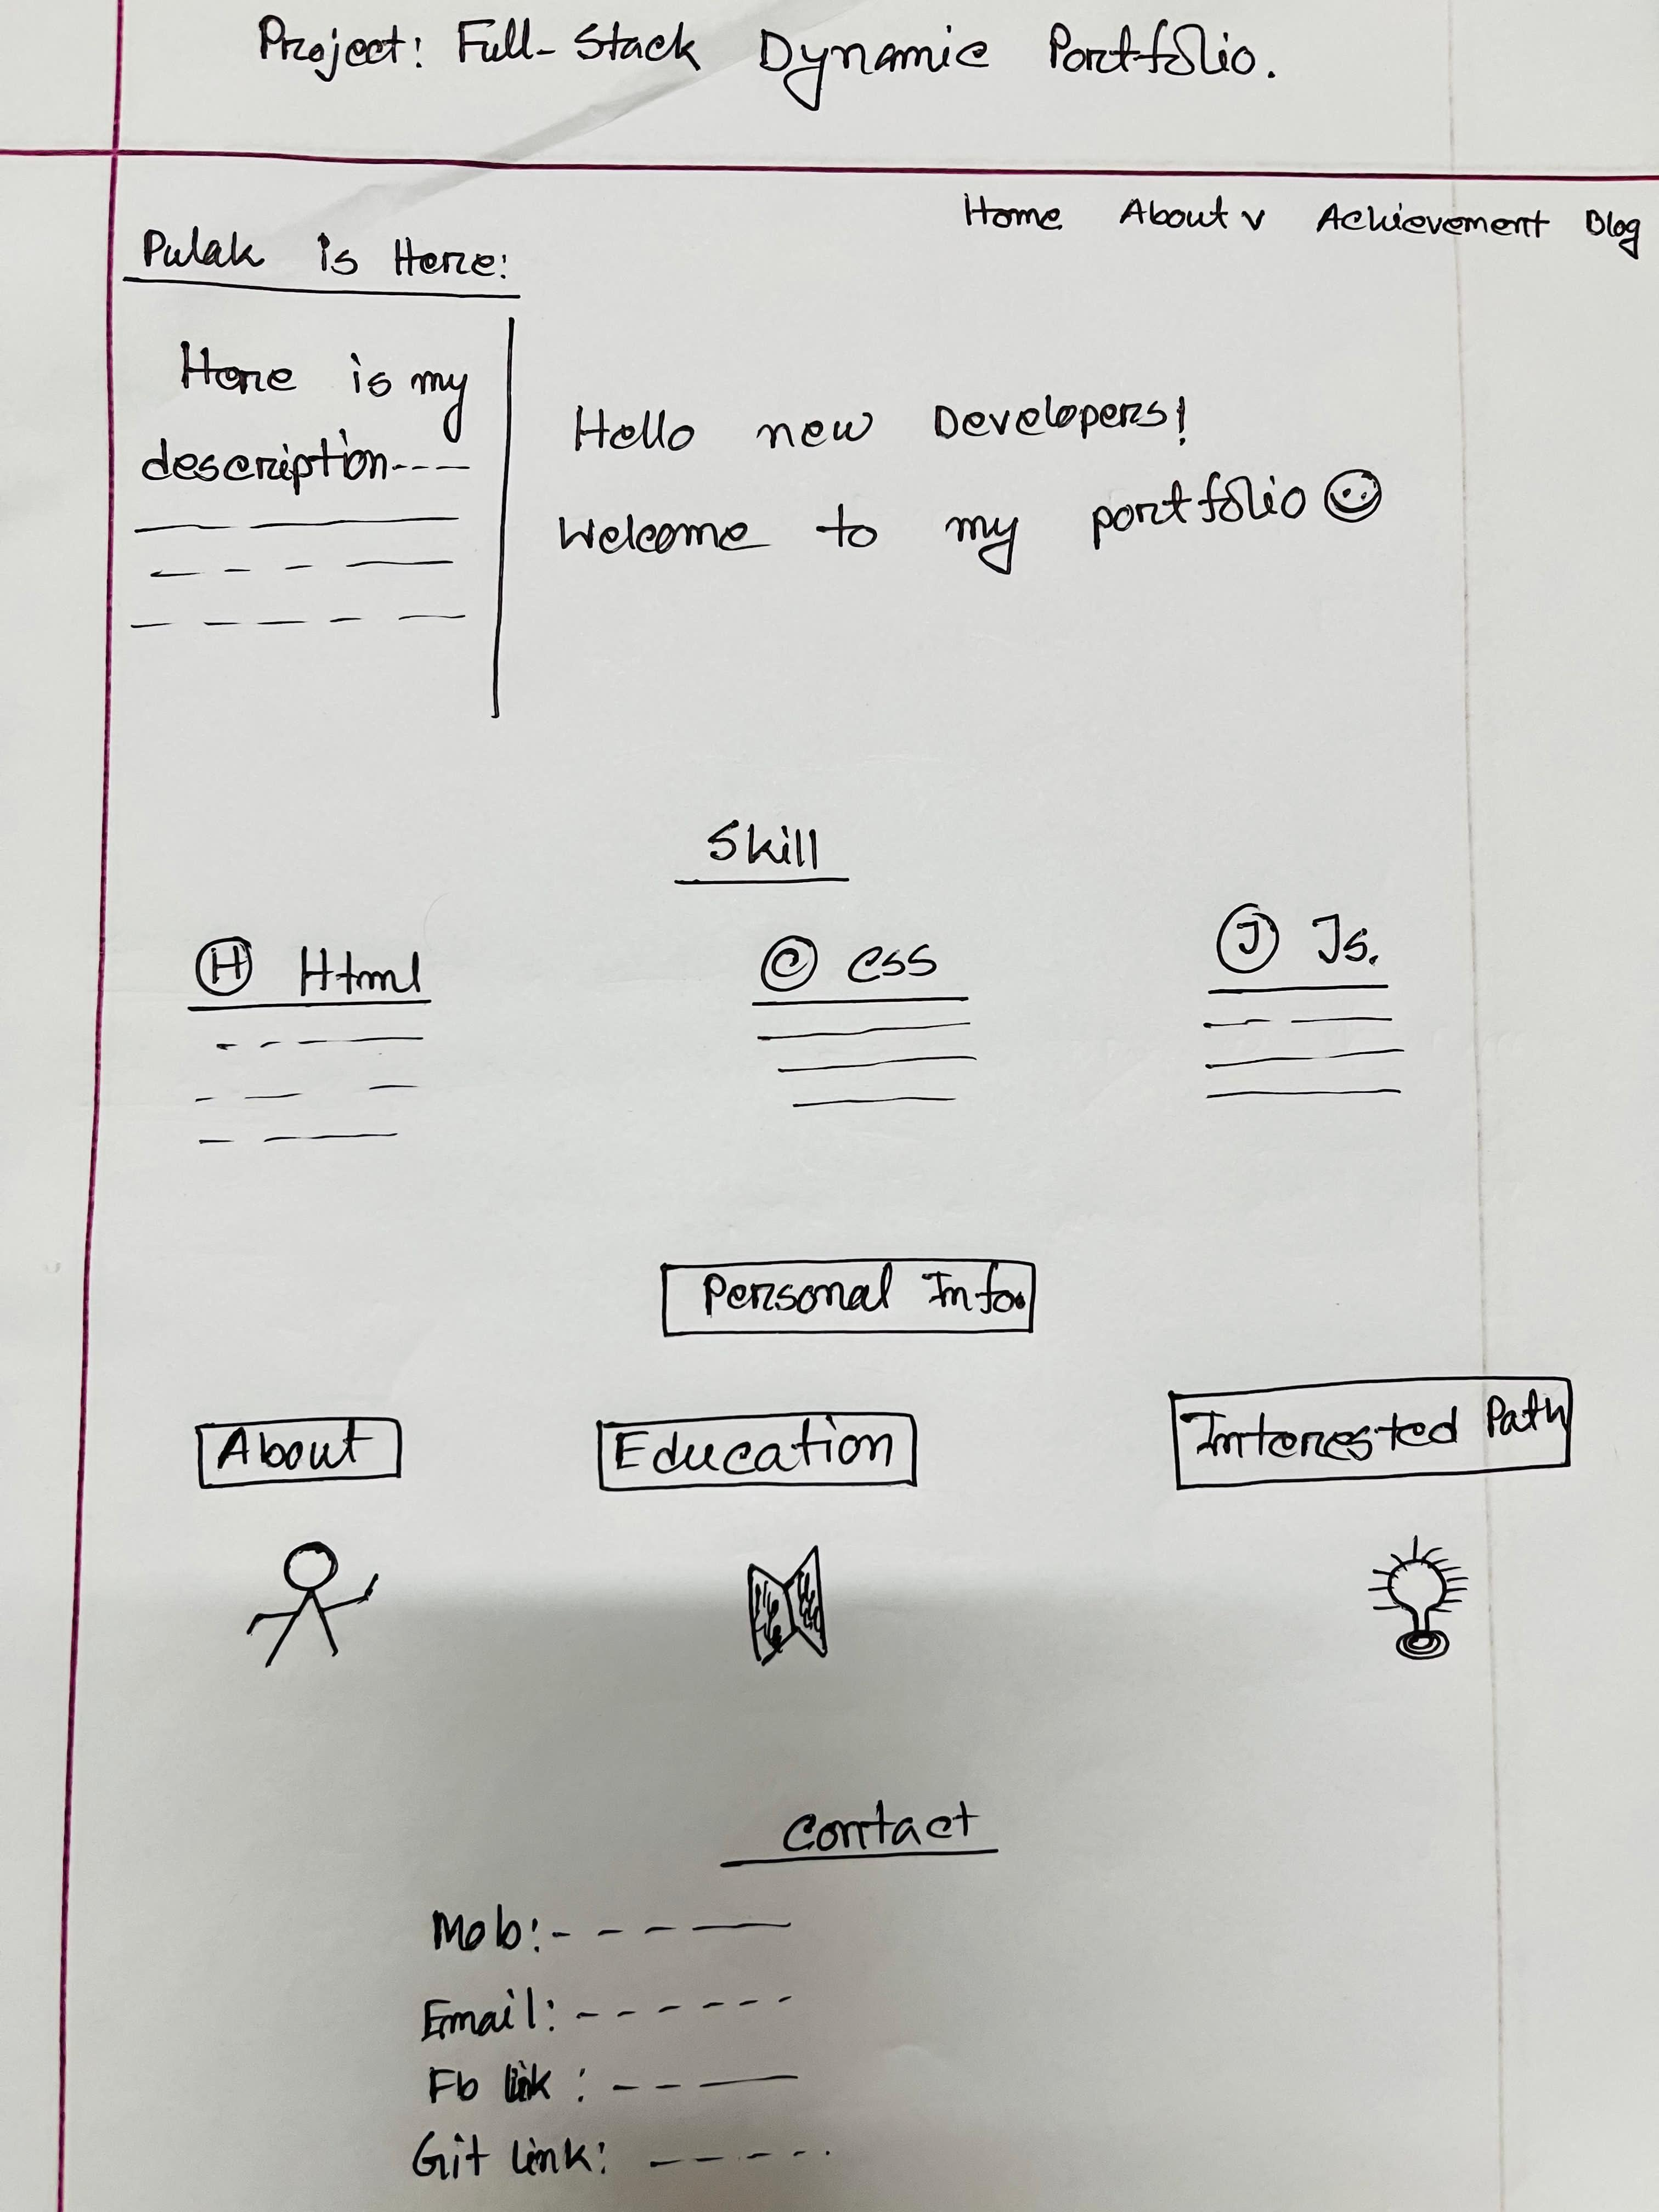 Project: Full-Stack Dynamic Portfolio.
Home About v Achievement Blog
Pulak is Here:
Here is my
description----
Hello new Developers!
Welcome to my portfolio ☺
Skill
H Html
C CSS
J Js.
Personal Info.
About
Education
Interested Path
Contact
Mob:
Email:
Fb link :
Git link: